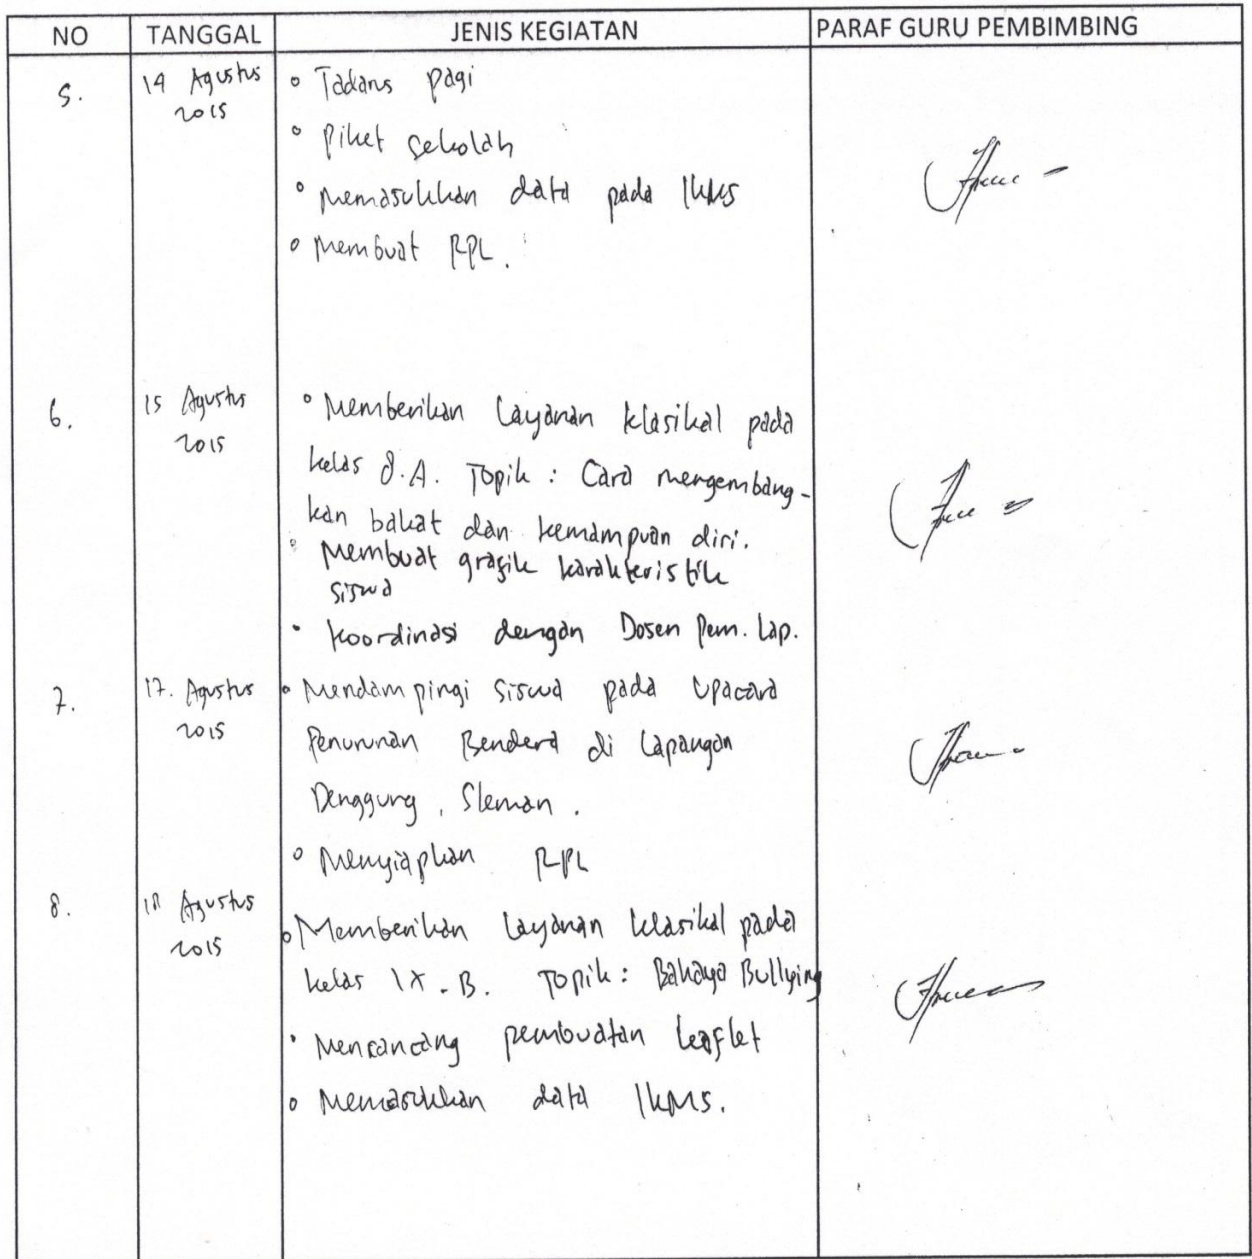 NO TANGGAL JENIS KEGIATAN PARAF GURU PEMBIMBING
5. 14 Agustus ° Tadarus pagi
2015
° Piket sekolah
° Memasukkan data pada IKMS
° Membuat RPL.
6. 15 Agustus ° Memberikan Layanan klasikal pada
2015
kelas 8.A. Topik : Cara mengembang-
kan bakat dan kemampuan diri.
° Membuat grafik karakteristik
siswa
° Koordinasi dengan Dosen Pem. Lap.
7. 17. Agustus ° Mendampingi siswa pada Upacara
2015 Penurunan Bendera di Lapangan
Denggung, Sleman.
° Menyiapkan RPL
8. 18 Agustus
2015 ° Memberikan Layanan klasikal pada
kelas IX.B. Topik : Bahaya Bullying
° Merancang pembuatan leaflet
° Memasukkan data IKMS.